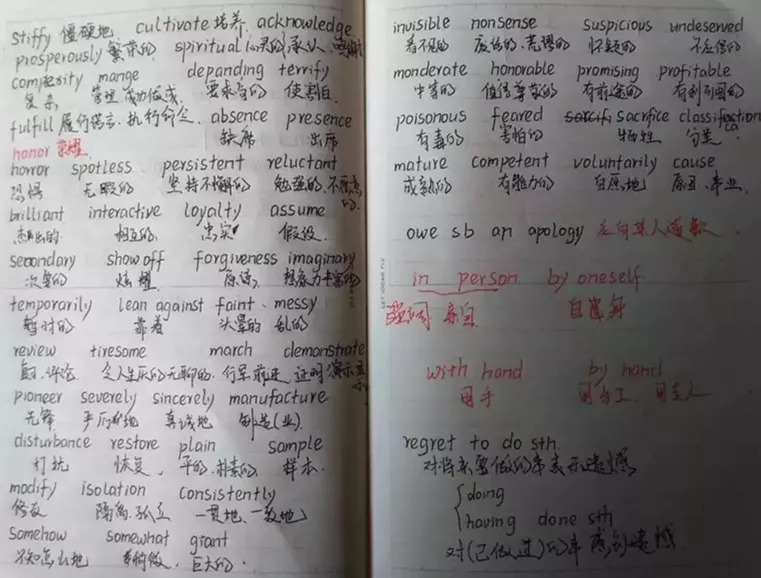 stiffy 僵硬地. cultivate 培养. acknowledge
prosperously 繁荣的 spiritual 心灵的 承认,
compexity mange depanding terrify
复杂 管理.成功做成. 要求高的 使害怕.
fulfill 履行诺言.执行命令. absence presence
缺席 出席
honor 荣耀.
horror spotless persistent reluctant
恐惧 无暇的 坚持不懈的 勉强的.不愿意的.
brilliant interactive loyalty assume
杰出的 相互的. 忠实 假设.
secondary show off forgiveness imaginary
次要的 炫耀 原谅. 想象力丰富的
temporarily lean against faint . messy
暂时的 靠着 头晕的 乱的
review tiresome march demonstrate
评论 令人生厌的无聊的. 行军前进. 证明演示
pioneer severely sincerely manufacture
先锋 严厉地 真诚地 制造(业).
disturbance restore plain sample
打扰 恢复. 平的.朴素的. 样本.
modify isolation consistently
修改 隔离.孤立 一贯地.一致地
somehow somewhat giant
不知怎么地 有些,有点 巨大的.
invisible nonsense suspicious undeserved
看不见的 废话的.荒谬的 怀疑的 不应得的
monderate honorable promising profitable
中等的 值得尊敬的 有前途的 有利可图的
poisonous feared sacrifice classification
有毒的 害怕的 牺牲 分类
mature competent voluntarily cause
成熟的 有能力的 自愿地 原因.事业.
owe sb an apology 应向某人道歉.
in person by oneself
强调 亲自 自己
with hand by hand
用手 用手工.
regret to do sth.
对将来要做的事表示遗憾.
doing
having done sth
对(已做过)的事感到遗憾.